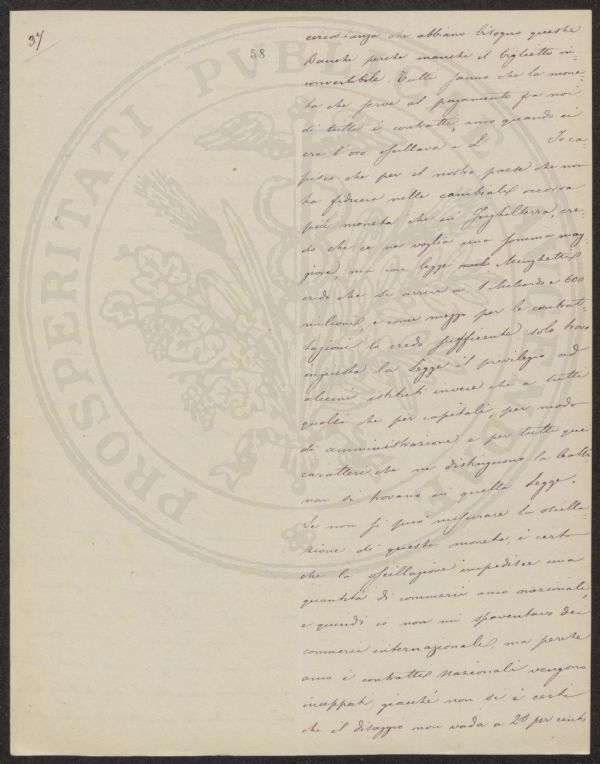 37
58
PROSPERITATI PVBLICAE
circostanza che abbiano bisogno queste
Banche perchè manchi il biglietto in-
convertibile. Tutti sanno che la mone-
ta che serve al pagamento fra noi
di tutti i contratti, anco quando ci
era l'oro oscillava a L Io ca-
pisco che per il nostro paese che non
ha fiducia nelle cambiali occorra
più moneta che in Inghilterra, cre-
do che ce ne voglia una somma mag-
giore, ma con legge Minghetti
credo che si arrivi a 1 Miliardo e 600
milioni, e come mezzo per le contrat-
tazioni lo credo sufficiente solo trovo
ingiusta la Legge il privilegio ad
alcuni istituti invece che a tutti
quelli che per capitali, per modo
di amministrazione e per tutti quei
caratteri che ne distinguono la lealtà
non si trovano in quella Legge.
Se non si può misurare la oscilla-
zione di questa moneta, è certo
che la oscillazione impedisce una
quantità di commerci anco nazionali,
e quindi io non mi spaventavo dei
commerci internazionali, ma perchè
anco i contratti nazionali vengono
inceppati, giacchè non si è certi
che il disaggio non vada a 20 per cento